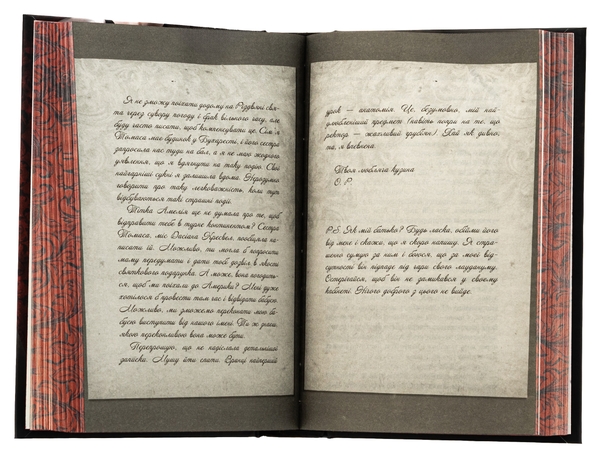 Я не зможу поїхати додому на Різдвяні свя-
та через сувору погоду і брак вільного часу, але
буду часто писати, щоб компенсувати це. Сім'я
Томаса має будинок у Бухаресті, і його сестра
запросила нас туди на бал, а я не маю жодного
уявлення, що я вдягнути на таку подію. Свої
найгарніші сукні я залишила вдома. Нерозумно
говорити про таку легковажність, коли тут
відбуваються такі страшні події.
Тітка Амелія ще не думала про те, щоб
відправити тебе в турне континентом? Сестра
Томаса, міс Дасіана Кресвел, пообіцяла на-
писати їй. Можливо, ти могла б попросити
маму передумати і дати тобі дозвіл в якості
святкового подарунка. А може, вона погодить-
ся, щоб ти поїхали до Америки? Мені дуже
хотілося б провести там час і відвідати бабусю.
Можливо, ми зможемо переконати мою ба-
бусю виступити від нашого імені. Ти ж знаєш,
якою переконливою вона може бути.
Перепрошую, що не надіслала детальнішої
записки. Мушу йти спати. Вранці найперший
урок — анатомія. Це, безумовно, мій най-
улюбленіший предмет (навіть попри те, що
ректор — жахливий грубіян). Хай як дивно,
та, я впевнена.
Твоя любляча кузина
О. Р.
P.S. Як мій батько? Будь ласка, обійми його
від мене і скажи, що я скоро напишу. Я стра-
шенно сумую за ним і боюся, що за моєї від-
сутності він підпаде під чари свого лаудануму.
Остерігайся, щоб він не замикався у своєму
кабінеті. Нічого доброго з цього не вийде.